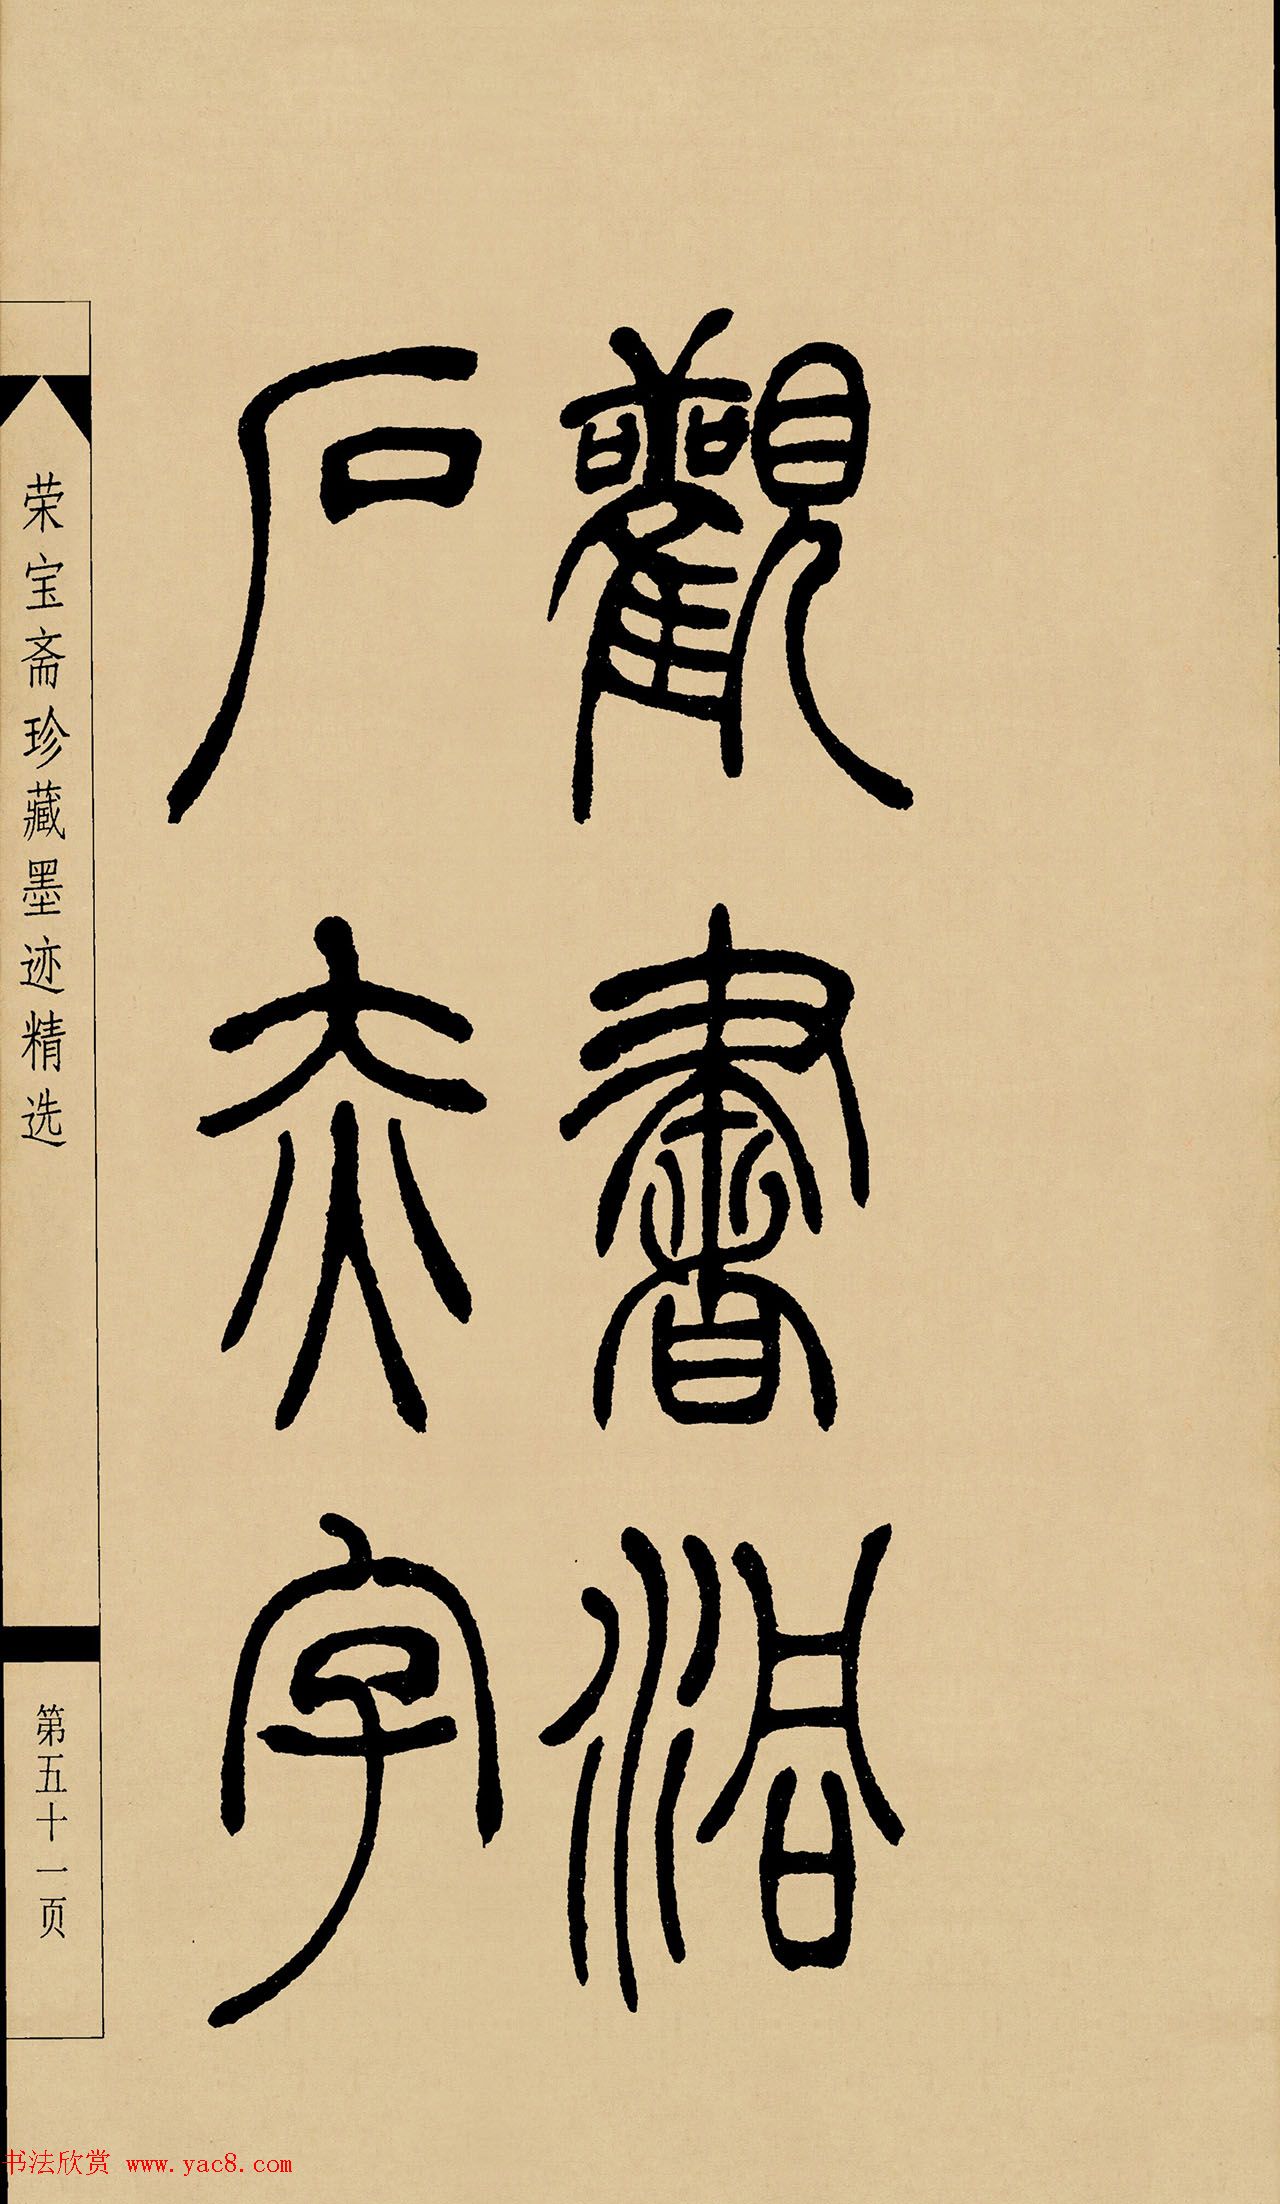 觀書
石赤字
荣宝斋珍藏墨迹精选
第五十一页
书法欣赏 www.yac8.com